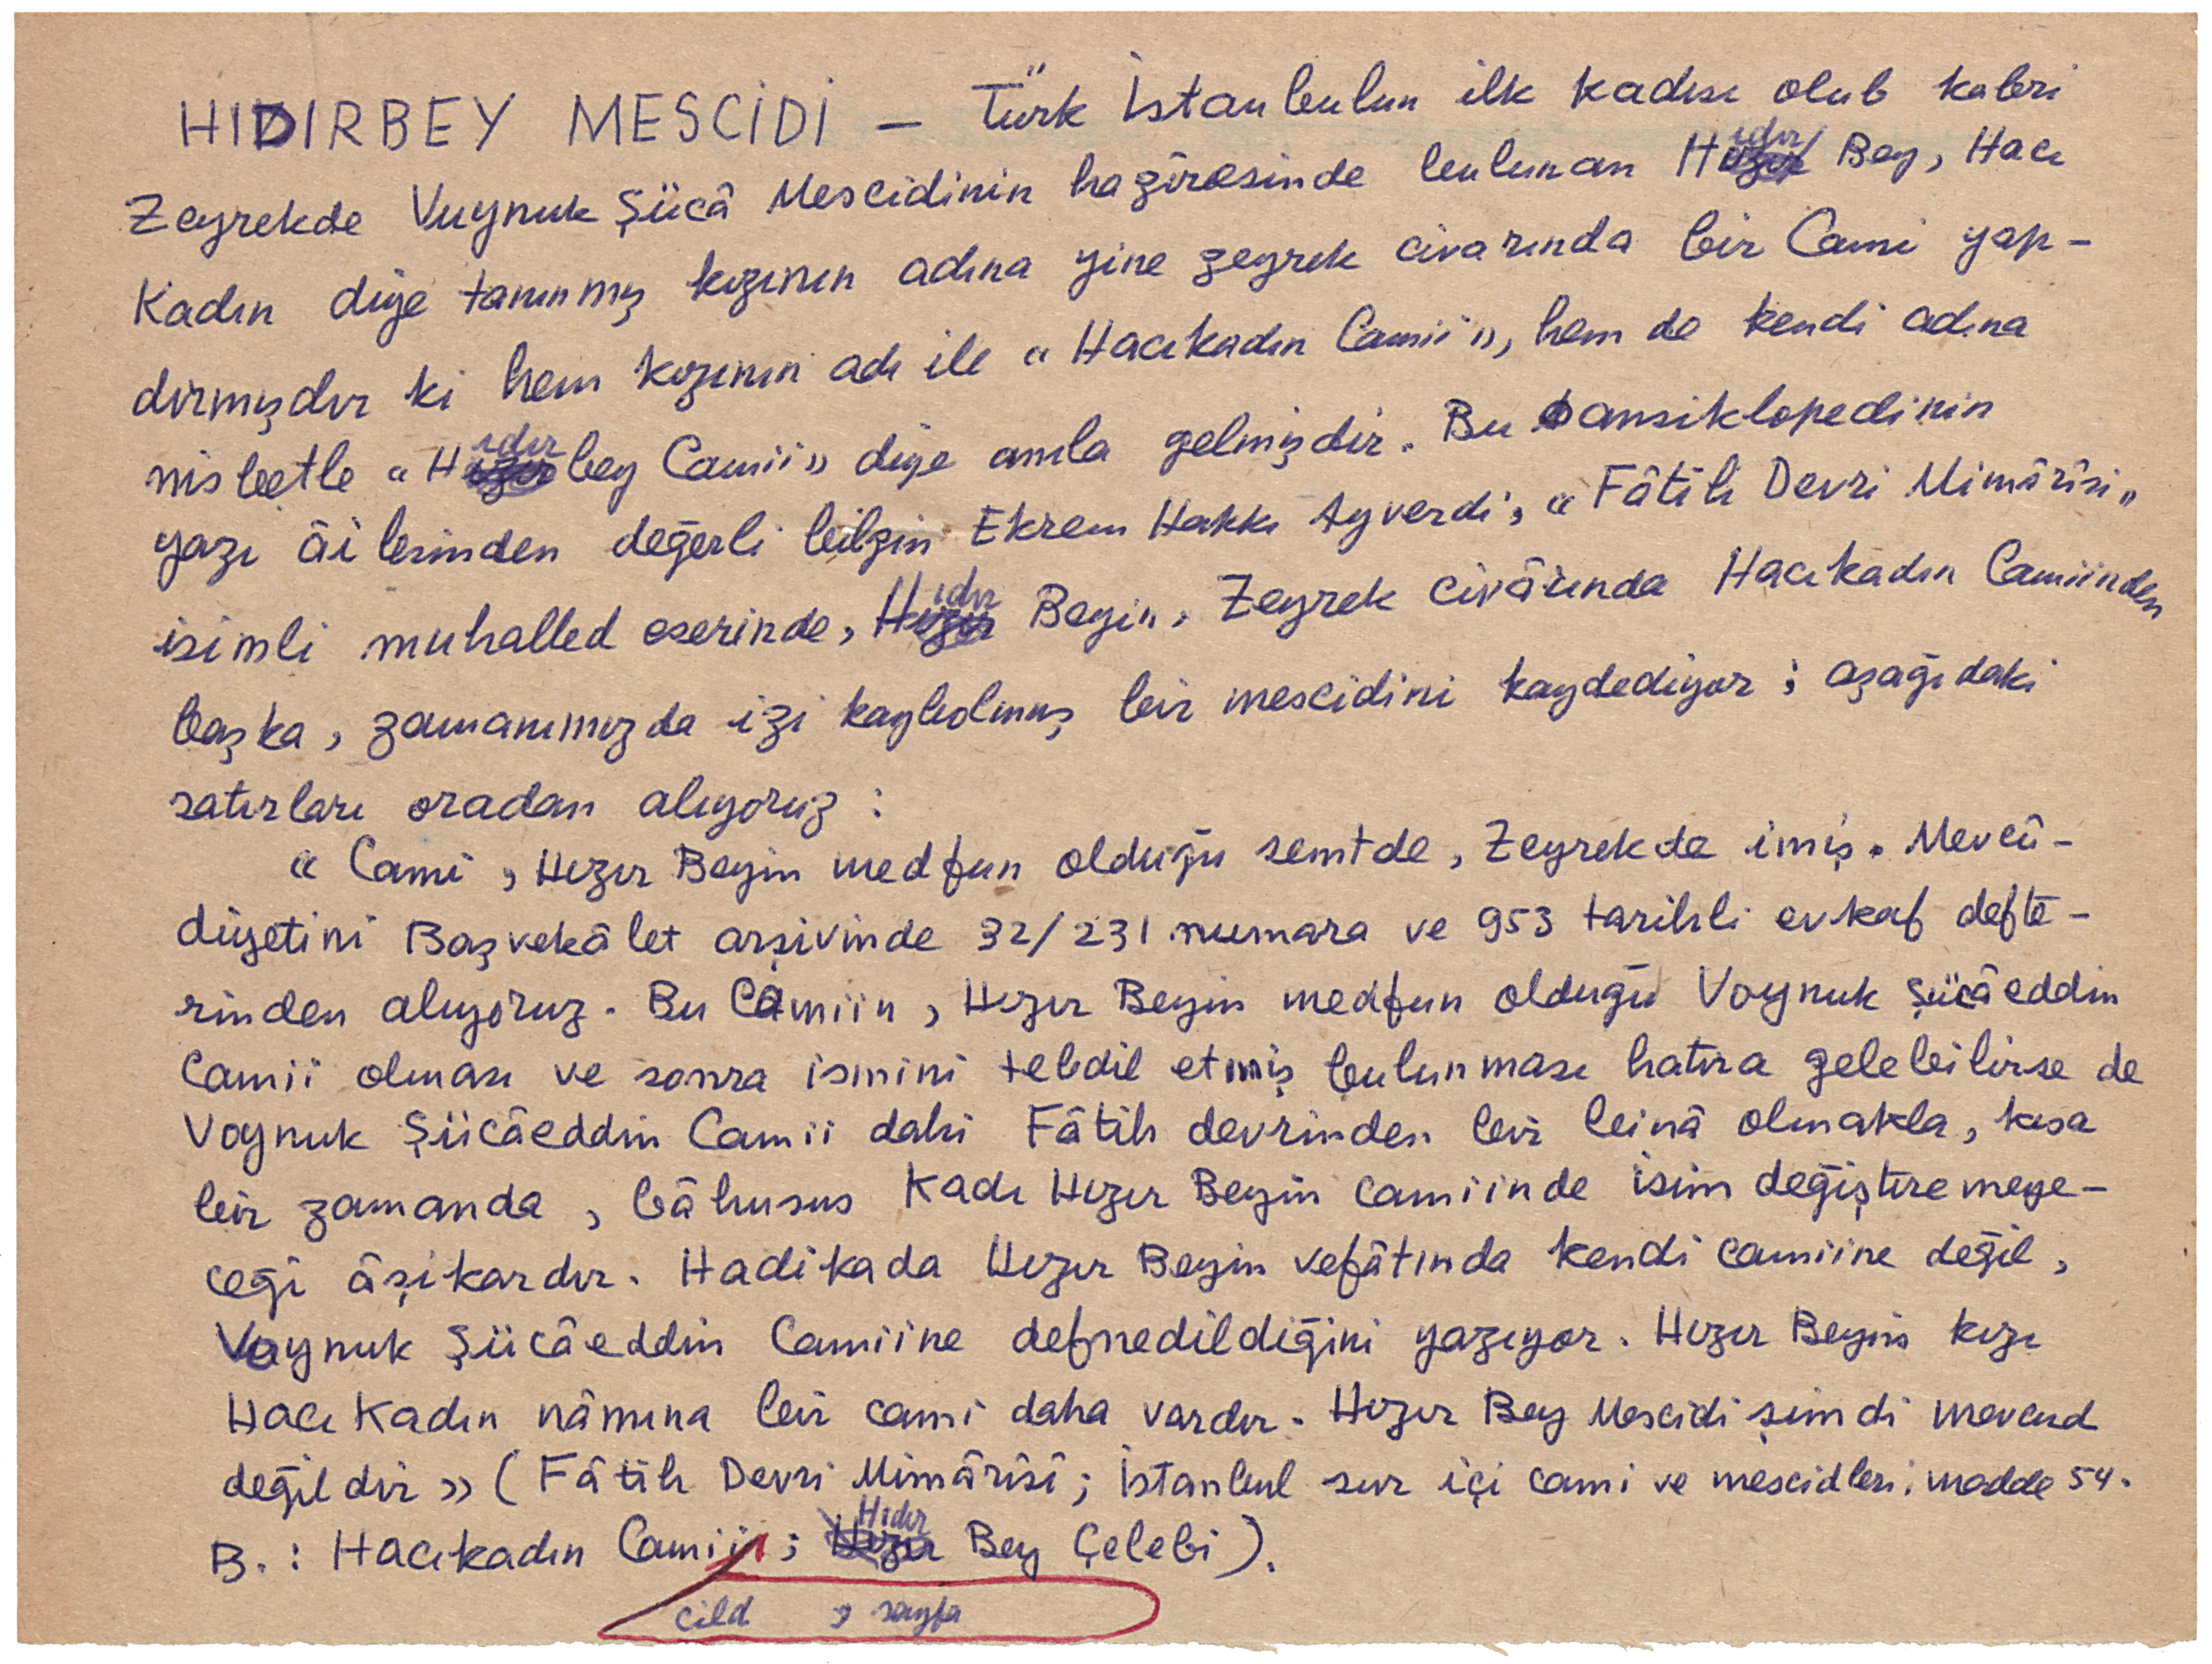 HIDIRBEY MESCİDİ — Türk İstanbulun ilk kadısı olub kabri
Zeyrekde Vuynuk Şücâ Mescidinin hazîresinde bulunan Hıdır Bey, Hacı
Kadın diye tanınmış kızının adına yine zeyrek civarında bir Cami yap-
dırmışdır ki hem kızının adı ile « Hacıkadın Camii », hem de kendi adına
nisbetle « Hıdırbey Camii » diye anıla gelmişdir. Bu ansiklopedinin
yazı âilesinden değerli bilgin Ekrem Hakkı Ayverdi, « Fâtih Devri Mimârîsi »
isimli muhalled eserinde, Hıdır Beyin, Zeyrek civârında Hacıkadın Camiinden
başka, zamanımızda izi kaybolmuş bir mescidini kaydediyor ; aşağıdaki
satırları oradan alıyoruz :
« Cami, Hızır Beyin medfun olduğu semtde, Zeyrekde imiş. Mevcû-
diyetini Başvekâlet arşivinde 32/231 numara ve 953 tarihli evkaf defte-
rinden alıyoruz. Bu Camiin, Hızır Beyin medfun olduğu Voynuk Şücâeddin
Camii olması ve sonra ismini tebdil etmiş bulunması hatıra gelebilirse de
Voynuk Şücâeddin Camii dahi Fâtih devrinden bir binâ olmakla, kısa
bir zamanda, bâhusus Kadı Hızır Beyin camiinde isim değiştiremeye-
ceği âşikardır. Hadikada Hızır Beyin vefâtında kendi camiine değil,
Voynuk Şücâeddin Camiine defnedildiğini yazıyor. Hızır Beyin kızı
Hacı Kadın nâmına bir cami daha vardır. Hızır Bey Mescidi şimdi mevcud
değildir » ( Fâtih Devri Mimârîsî ; İstanbul sur içi cami ve mescidleri, madde 54.
B. : Hacıkadın Camii ; Hıdır Bey Çelebi ).
cild , sayfa